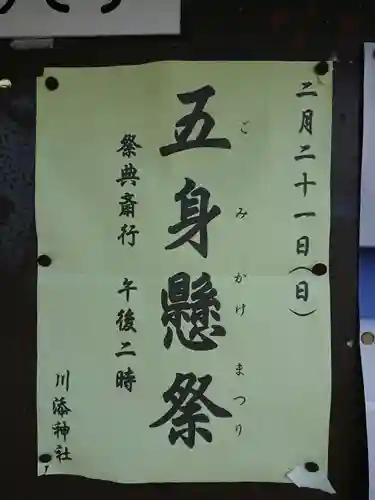 二月二十一日(日)
五身懸祭
ごみかけまつり
祭典斎行 午後二時
川添神社